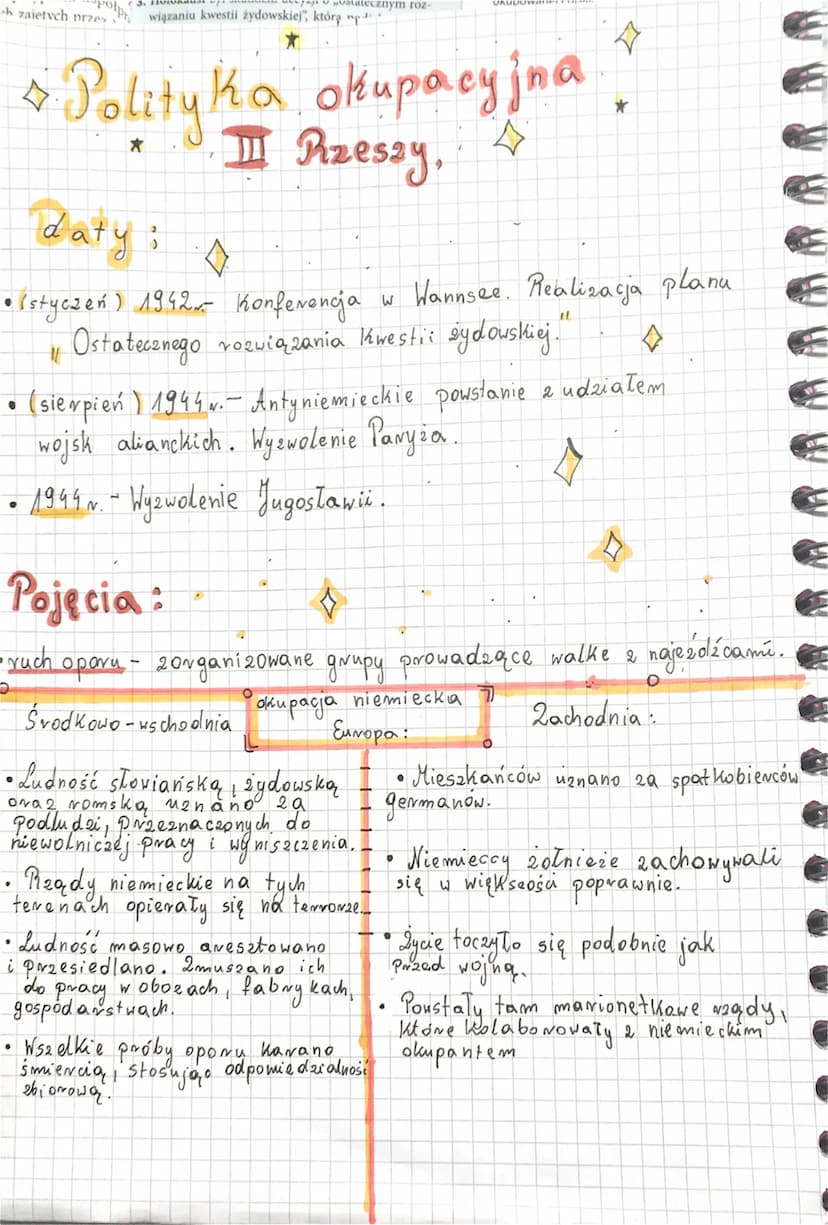 3. Holokaust był skutkiem decyzji o „ostatecznym roz-
wiązaniu kwestii żydowskiej", którą
Polityka okupacyjna
III Rzeszy,
Daty:
• (styczeń) 1942r.- Konferencja w Wannsee. Realizacja planu
" Ostatecznego rozwiązania Kwestii żydowskiej."
• (sierpień) 1944r.- Antyniemieckie powstanie z udziałem
wojsk alianckich. Wyzwolenie Paryża.
• 1944r. - Wyzwolenie Jugosławii.
Pojęcia:
•ruch oporu - zorganizowane grupy prowadzące walkę z najeźdźcami.
okupacja niemiecka
Europa:
Środkowo-wschodnia
• Ludność słowiańską, żydowską
oraz romską uznano za
podludzi, przeznaczonych do
niewolniczej pracy i wyniszczenia.
• Rządy niemieckie na tych
terenach opierały się na terrorze.
• Ludność masowo aresztowano
i przesiedlano. Zmuszano ich
do pracy w obozach, fabrykach,
gospodarstwach.
• Wszelkie próby oporu karano
śmiercią, stosując odpowiedzialność
zbiorową.
Zachodnia:
• Mieszkańców uznano za spatkobierców
germanów.
• Niemieccy żołnieże zachowywali
się w większości poprawnie.
• Życie toczyło się podobnie jak
przed wojną.
• Powstały tam marionetkowe rządy,
które kolaborowały z niemieckim
okupantem